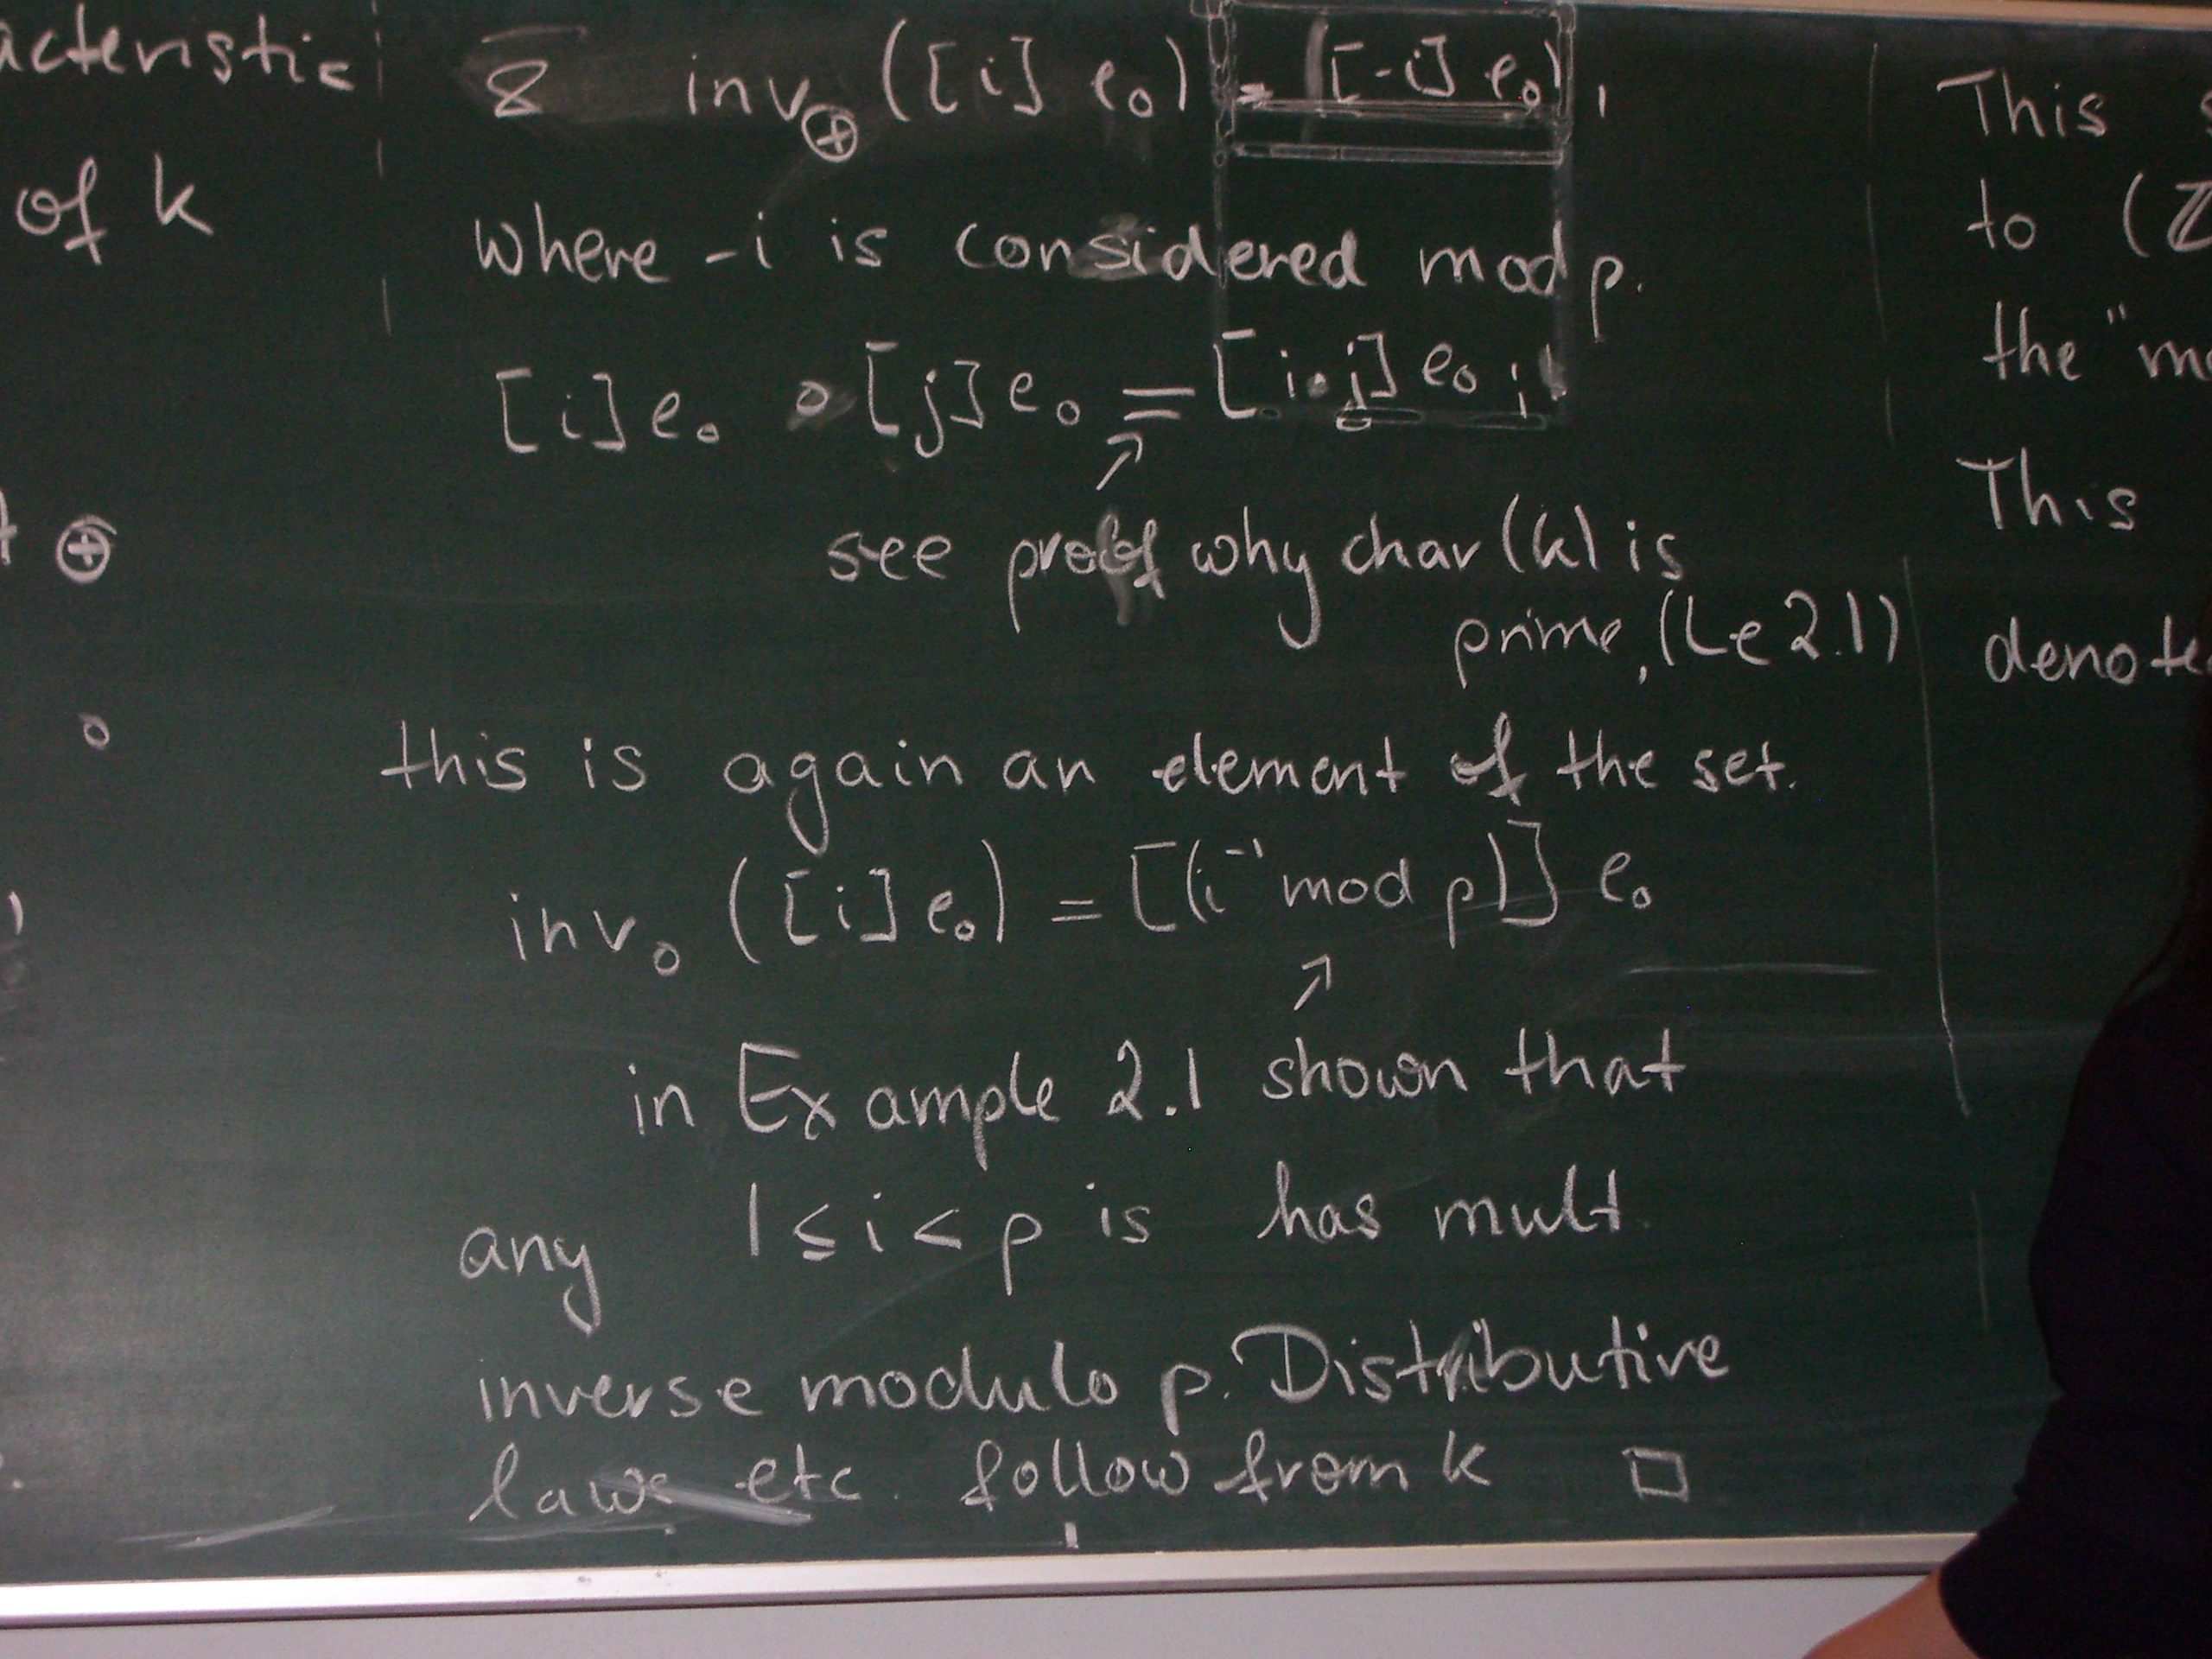 acteristic
of k
⊕
∘
8 inv⊕ ([i] e₀) = [-i] e₀,
where -i is considered mod p.
[i] e₀ ∘ [j] e₀ = [i·j] e₀ ;
↗
see proof why char (k) is
prime, (Le 2.1)
this is again an element of the set.
inv∘ ([i] e₀) = [(i⁻¹ mod p)] e₀
↗
in Example 2.1 shown that
any 1 ≤ i < p is has mult.
inverse modulo p. Distributive
laws etc. follow from k □
This
to (ℤ
the "m
This
denote